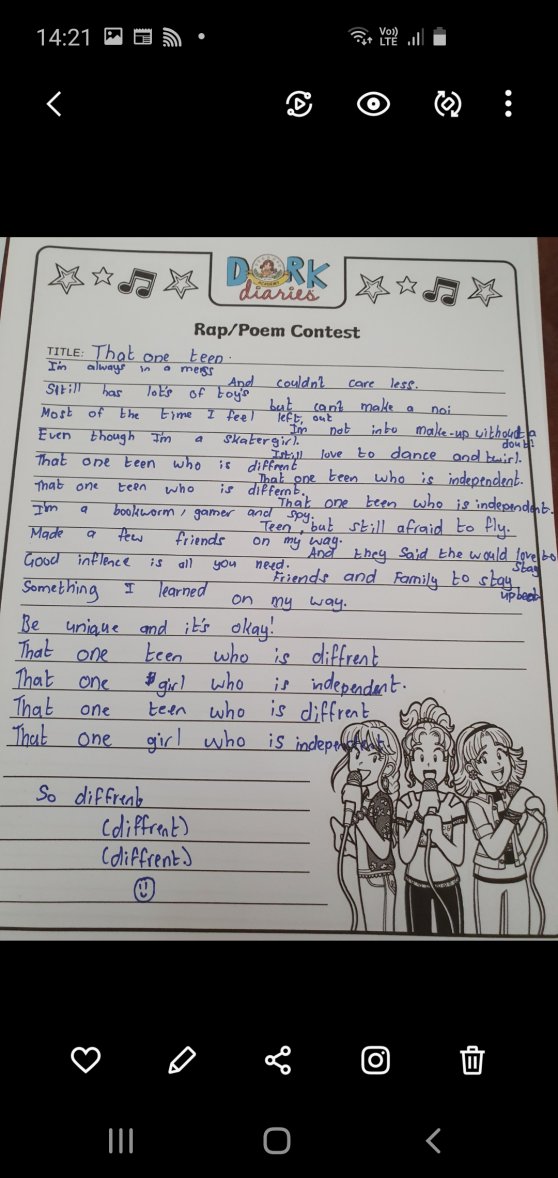 14:21
Vo)) LTE
DORK
diaries
Rap/Poem Contest
TITLE: That one teen.
I'm always in a mess
And couldn't care less.
Still has lot's of toy's
but can't make a noi
Most of the time I feel left, out
I'm not into make-up without a doubt
Even though I'm a skatergirl.
I still love to dance and twirl.
That one teen who is diffrent
That one teen who is independent.
That one teen who is differnt.
That one teen who is independent.
I'm a bookworm, gamer and spy.
Teen, but still afraid to fly.
Made a few friends on my way.
And they said the would love to stay
Good inflence is all you need.
Friends and Family to stay upbeat
Something I learned on my way.
Be unique and it's okay!
That one teen who is diffrent
That one girl who is independent.
That one teen who is diffrent
That one girl who is independent
So diffrent
(diffrent)
(diffrent)